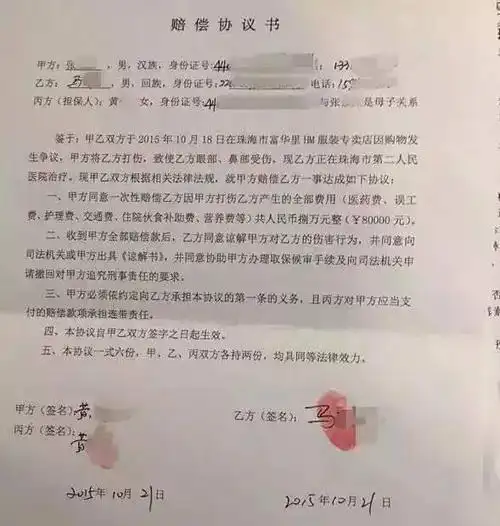 赔偿协议书
甲方:张 ,男,汉族,身份证号:44
乙方:马 ,男,回族,身份证号:22 电话:15
丙方(担保人):黄 女,身份证号:44 与张 是母子关系
鉴于:甲乙双方于2015年10月18日在珠海市富华里HM服装专卖店因购物发
生争议,甲方将乙方打伤,致使乙方眼部、鼻部受伤,现乙方正在珠海市第二人民
医院治疗。现甲乙双方根据相关法律法规,就甲方赔偿乙方一事达成如下协议:
一、甲方同意一次性赔偿乙方因甲方打伤乙方产生的全部费用(医药费、误工
费、护理费、交通费、住院伙食补助费、营养费等)共人民币捌万元整(¥80000元)。
二、收到甲方全部赔偿款后,乙方同意谅解甲方对乙方的伤害行为,并同意向
司法机关或甲方出具《谅解书》,并同意协助甲方办理取保候审手续及向司法机关申
请撤回对甲方追究刑事责任的要求。
三、甲方必须依约定向乙方承担本协议的第一条的义务,且丙方对甲方应当支
付的赔偿款项承担连带责任。
四、本协议自甲乙双方签字之日起生效。
五、本协议一式六份,甲、乙、丙双方各持两份,均具同等法律效力。
甲方(签名):黄
乙方(签名):马
丙方(签名):
黄
2015年10月21日
2015年10月21日